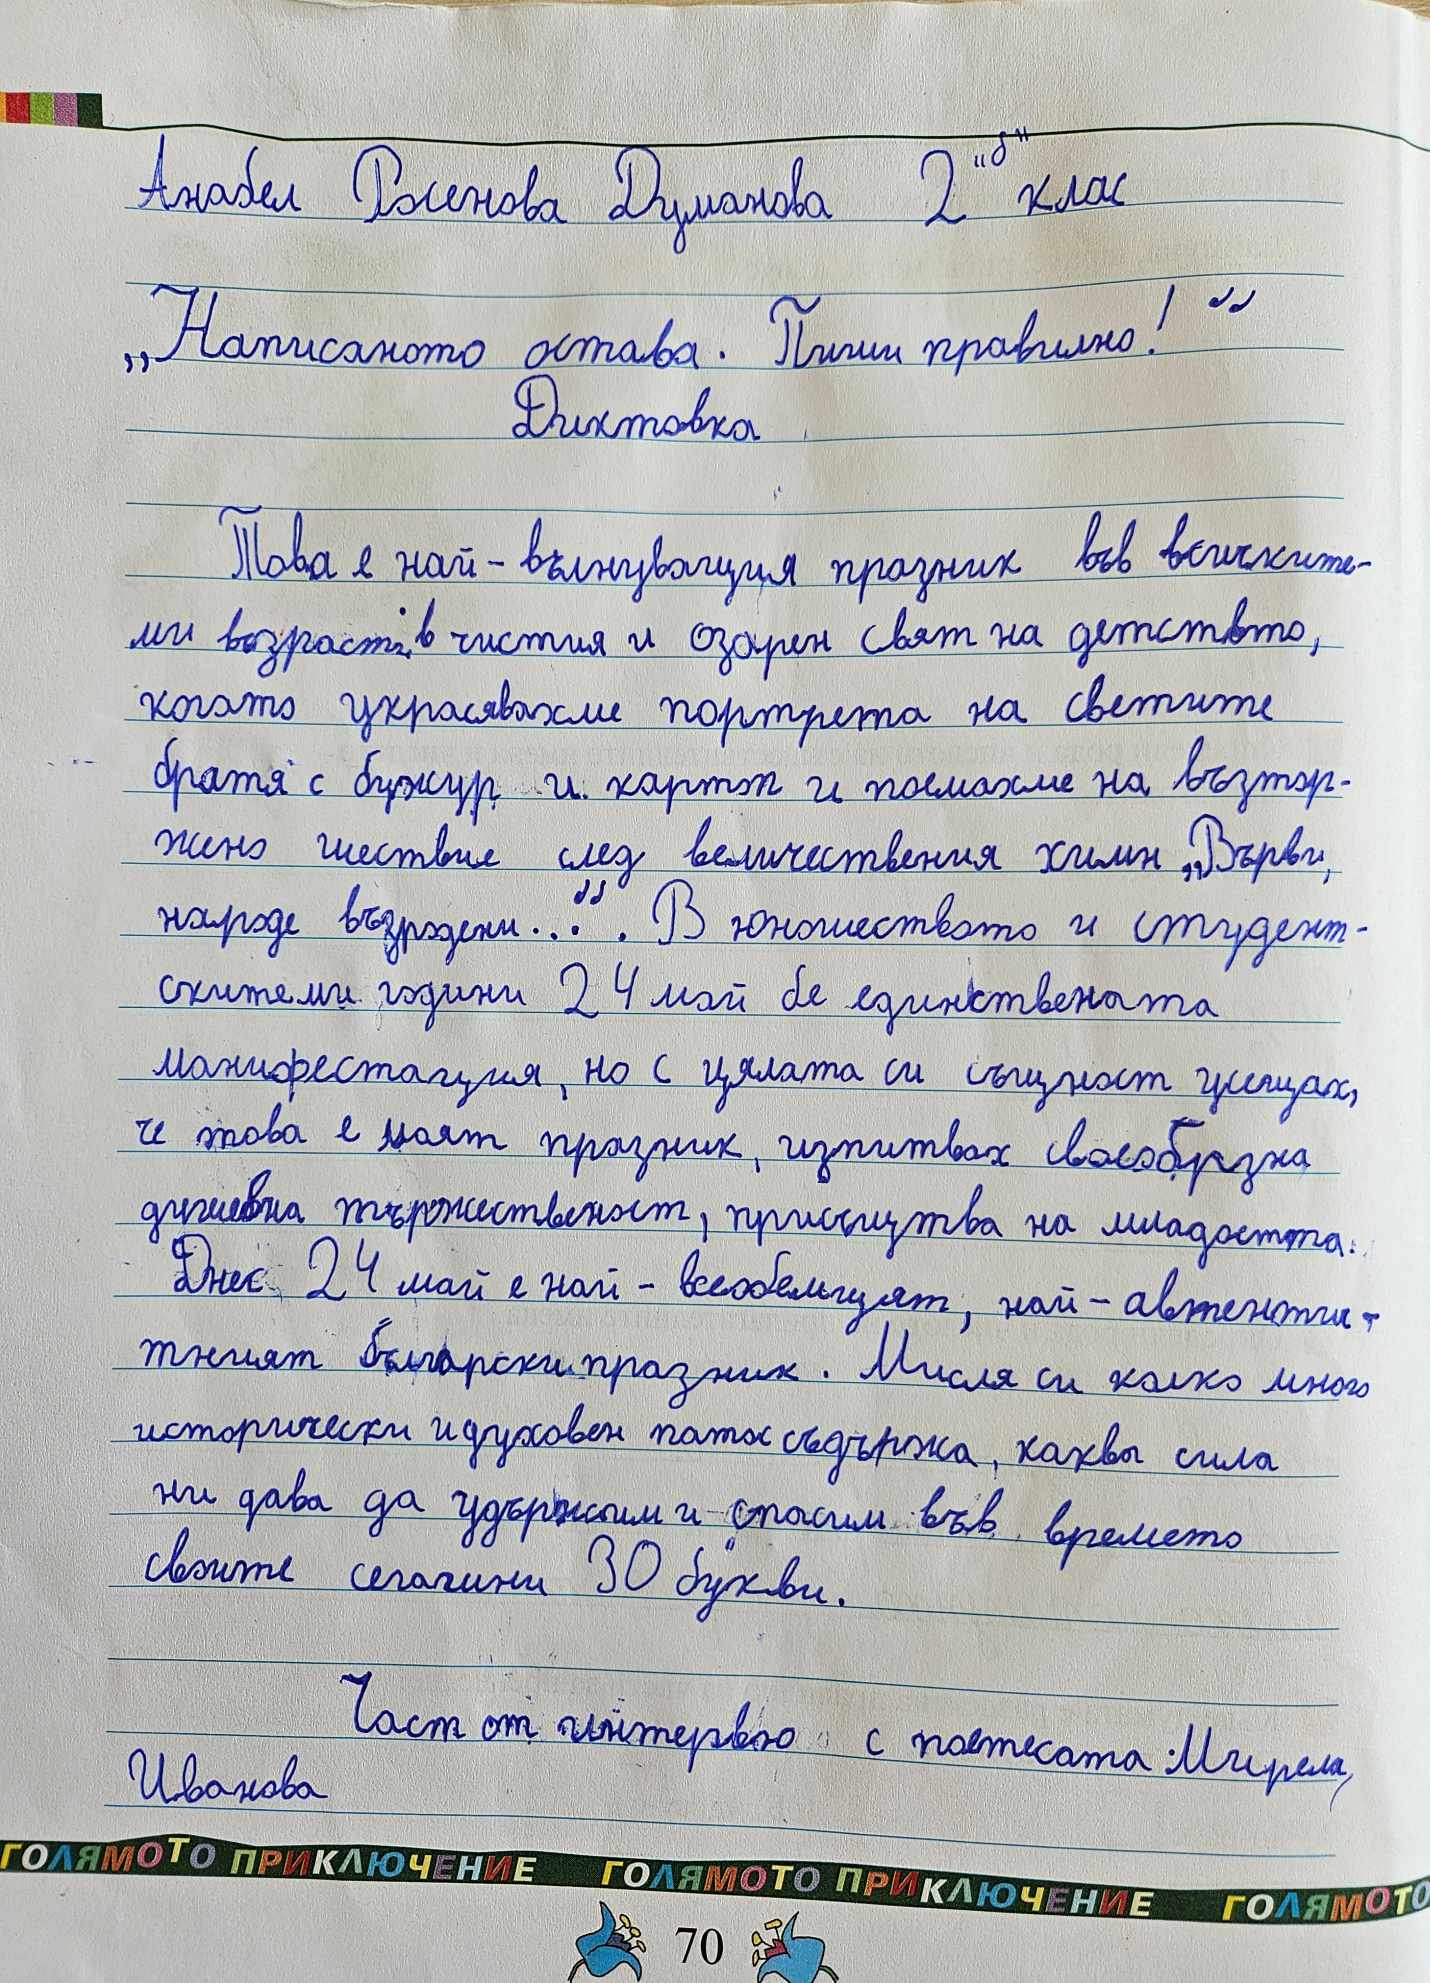 Анабел Росенова Думанова 2 "б" клас
„Написаното остава. Пиши правилно!“
Диктовка
Това е най-вълнуващия празник във всичките-
ми възрасти в чистия и озарен свят на детството,
когато украсявахме портрета на светите
братя с божур и картон и поемахме на възтор-
жено шествие след величествения химн „Върви,
народе възродени...“. В юношеството и студент-
скитеми години 24 май бе единствената
манифестация, но с цялата си същност усещах,
че това е моят празник, изпитвах своеобразна
душевна тържественост, присъщтва на младостта.
Днес 24 май е най-всеобемащият, най-автенти-
тният български празник. Мисля си колко много
исторически и духовен патос съдържа, каква сила
ни дава да удържим и спасим във времето
своите сегашни 30 букви.
Част от интервю с поетесата Мирела
Иванова
ГОЛЯМОТО ПРИКЛЮЧЕНИЕ ГОЛЯМОТО ПРИКЛЮЧЕНИЕ ГОЛЯМОТО
70